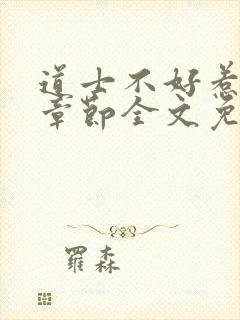 道士不好惹
章節全文免
羅森